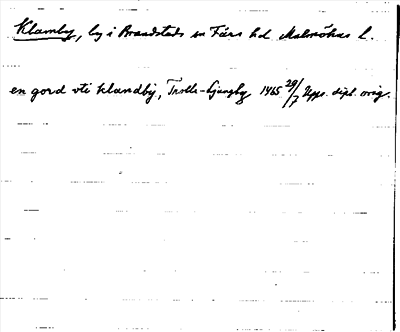 Klamby, by i Brandstads sn Färs hd Malmöhus l.
en gord vti klandby, Trolle-Ljungby 1465 29/7 Upps. dipl. orig.